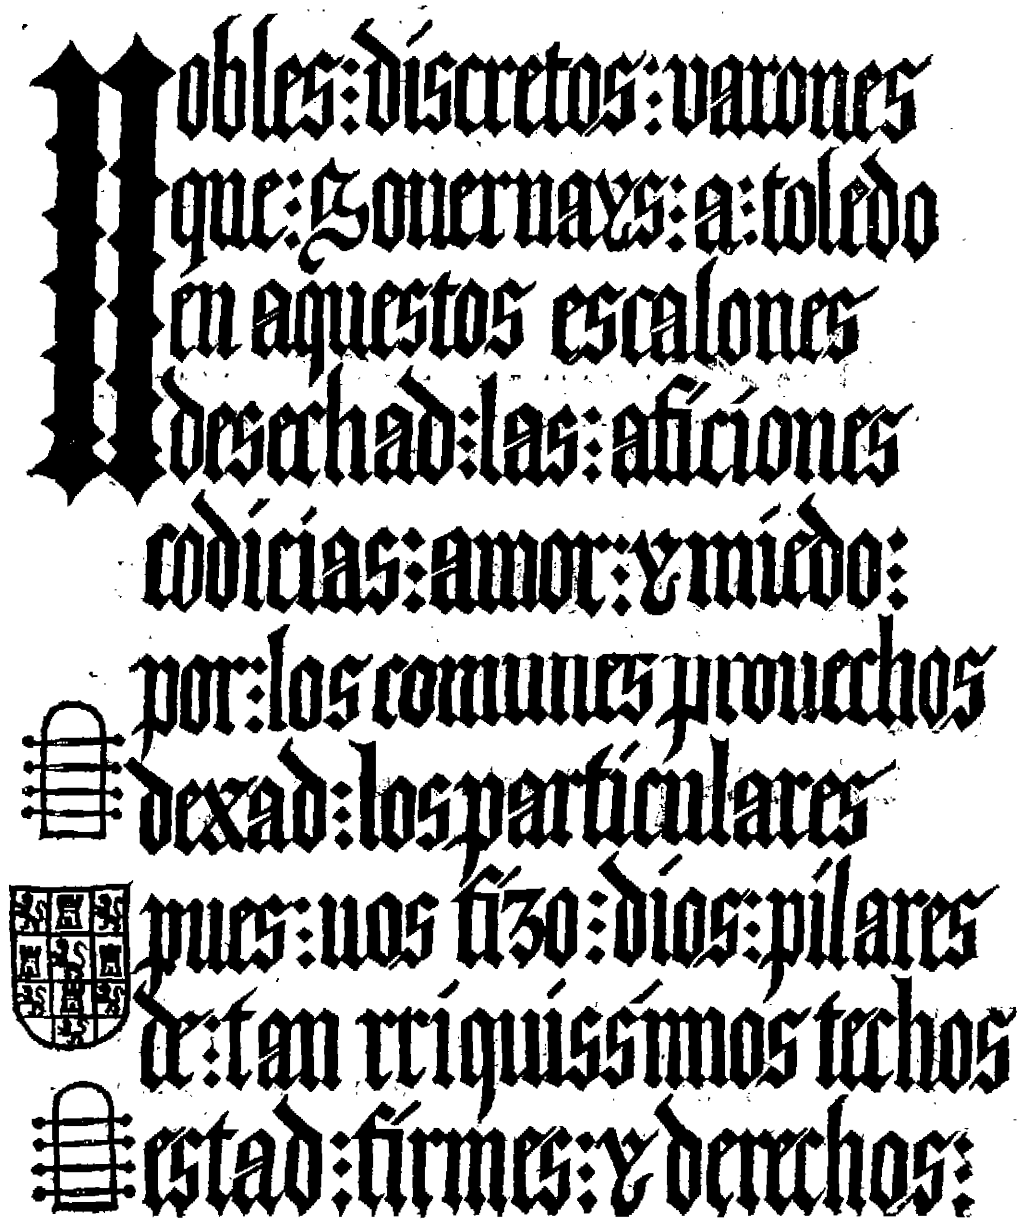 Nobles: discretos: varones
que: Gouernays: a: toledo
en aquestos escalones
desechad: las: aficiones
codicias: amor: y miedo:
por: los comunes prouechos
dexad: los particulares
pues: uos fizo: dios: pilares
de: tan rriquissimos techos
estad: firmes: y derechos: